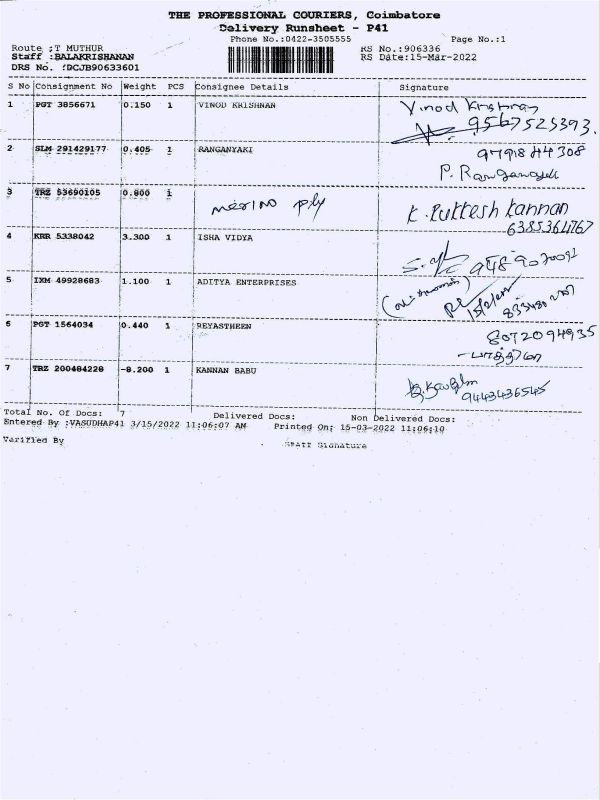 THE PROFESSIONAL COURIERS, Coimbatore
Delivery Runsheet - P41
Phone No.:0422-3505555
Page No.:1
Route :T MUTHUR
RS No.:906336
Staff :BALAKRISHANAN
RS Date:15-Mar-2022
DRS No. :DCJB90633601
S No Consignment No Weight PCS Consignee Details Signature
1 PGT 3856671 0.150 1 VINOD KRISHNAN Vinod Krishnan
9567525393.
2 SLM 291429177 0.405 1 RANGANYAKI
3 TRZ 53690105 0.800 1 merino ply K. Puttesh Kannan
6385364767
4 KRR 5338042 3.300 1 ISHA VIDYA
5 IXM 49928683 1.100 1 ADITYA ENTERPRISES
6 PGT 1564034 0.440 1 REYASTHEEN 8072094935
7 TRZ 200484228 -8.200 1 KANNAN BABU
9443436545
Total No. Of Docs: 7 Delivered Docs: Non Delivered Docs:
Entered By :VASUDHAP41 3/15/2022 11:06:07 AM Printed On: 15-03-2022 11:06:10
Varified By Staff Signature